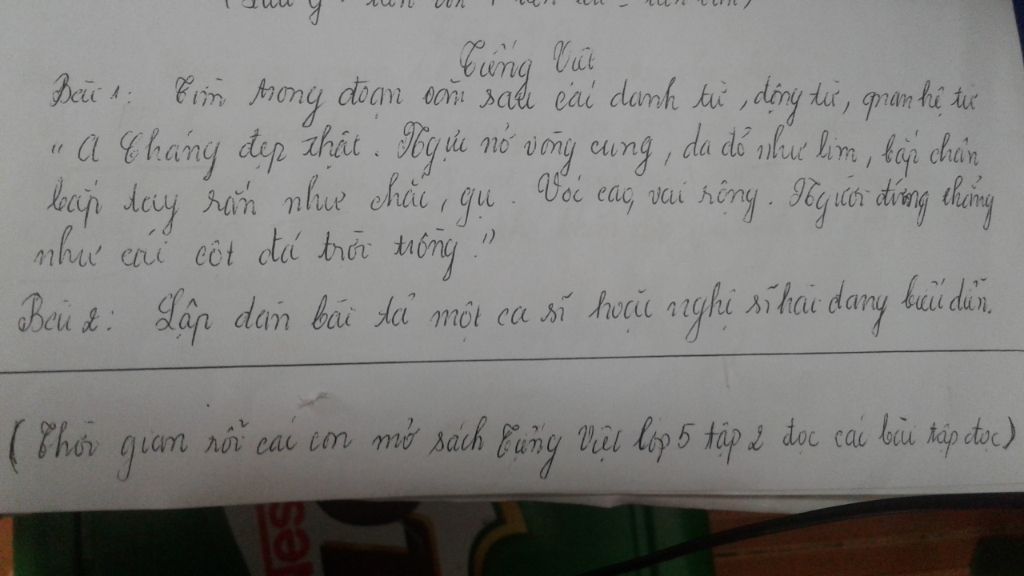 Tiếng Việt
Bài 1: Tìm trong đoạn văn sau các danh từ, động từ, quan hệ từ
"A Cháng đẹp thật. Ngực nở vòng cung, da đỏ như lim, bắp chân
bắp tay rắn như chắc, gụ. Vóc cao, vai rộng. Người đứng thẳng
như cái cột đá trời trồng."
Bài 2: Lập dàn bài tả một ca sĩ hoặc nghệ sĩ hài đang biểu diễn.
(Thời gian rỗi các con mở sách Tiếng Việt lớp 5 tập 2 đọc các bài tập đọc)